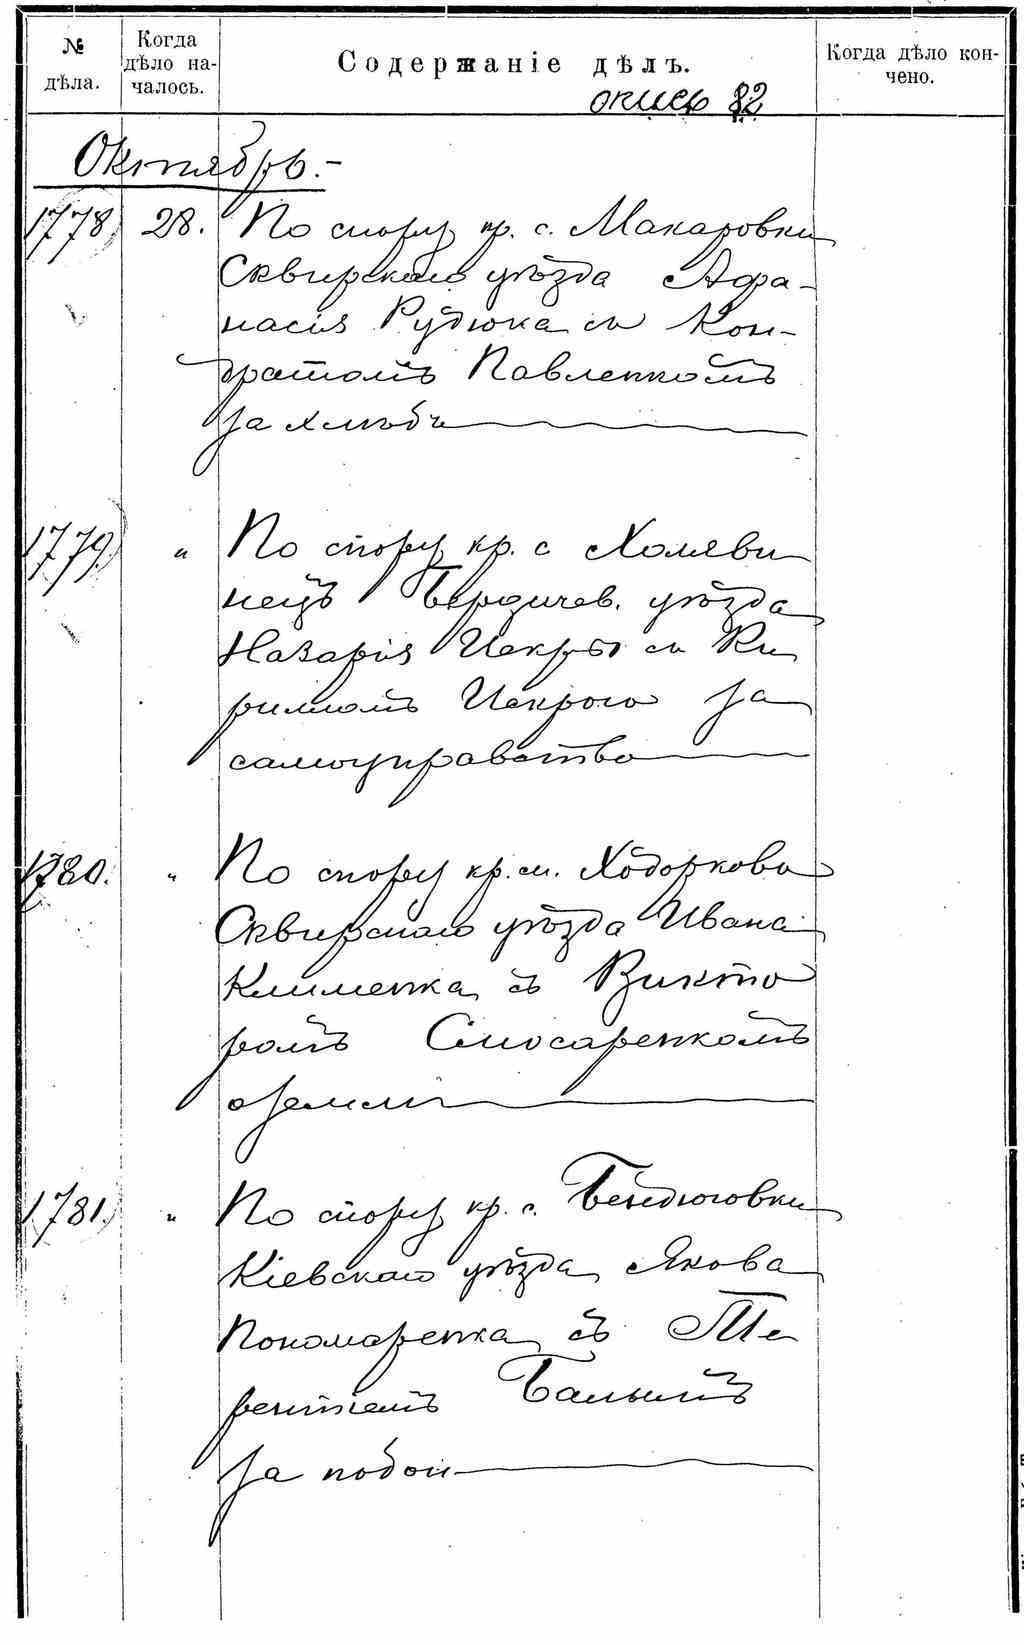 № дѣла. Когда дѣло на-чалось. Содержаніе дѣлъ. Когда дѣло кон-чено.
опись 82
Октябрь.-
1778) 28. По спору кр. с. Макаровки
Сквирскаго уѣзда Афа-
насія Рудюка съ Кон-
дратомъ Павленкомъ
за хлѣбъ
1779.) " По спору кр. с Холяви
нецъ Бердичев. уѣзда
Назарія Искры съ Ки
риломъ Искрою за
самоуправство
1780. " По спору кр. м. Ходоркова
Сквирскаго уѣзда Ивана
Клименка съ Викто
ромъ Слюсаренкомъ
о землѣ
1781.) " По спору кр. с. Бендюговки
Кіевскаго уѣзда Якова
Пономаренка съ Те
рентіемъ Балымъ
за побои